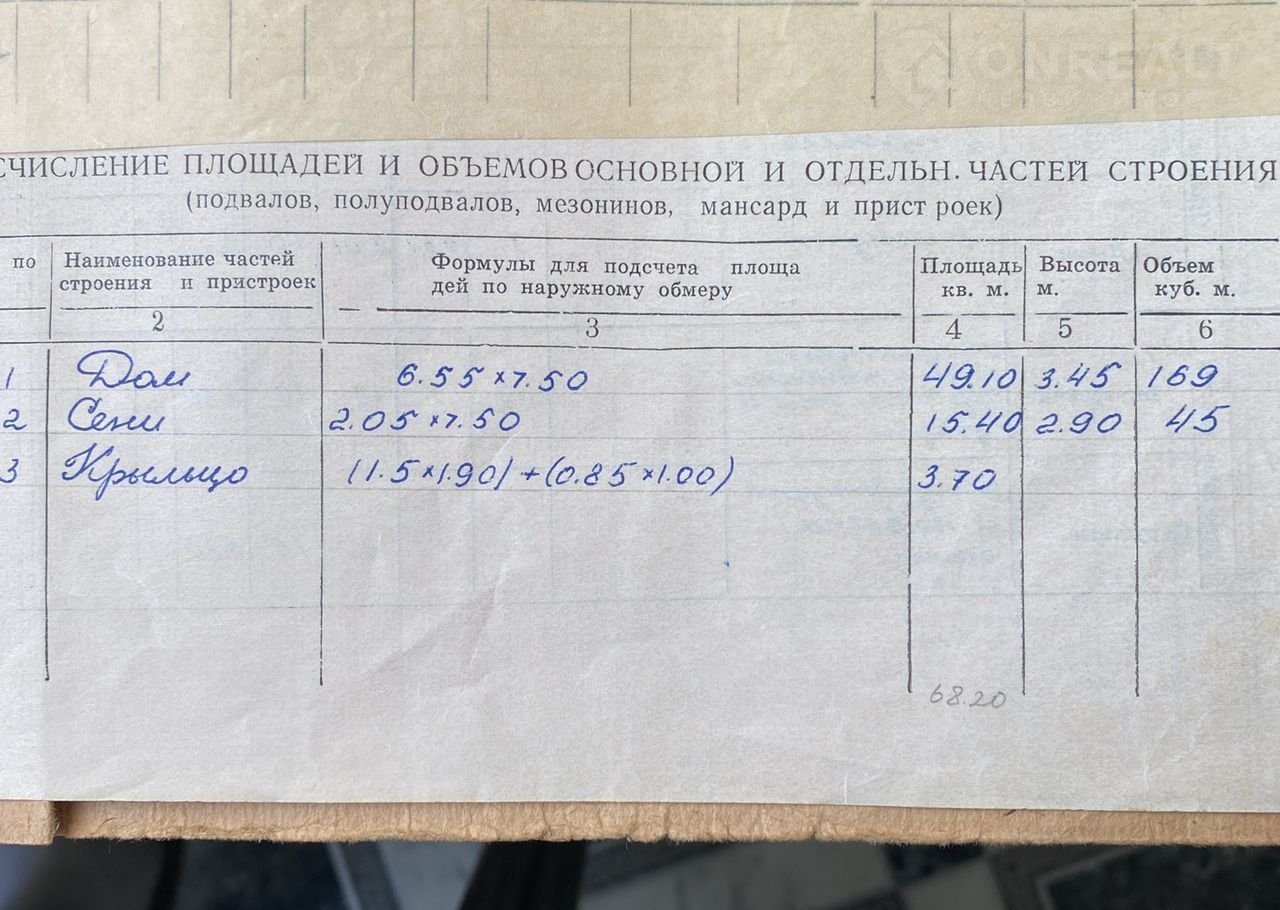 ONREALT
СЧИСЛЕНИЕ ПЛОЩАДЕЙ И ОБЪЕМОВ ОСНОВНОЙ И ОТДЕЛЬН. ЧАСТЕЙ СТРОЕНИЯ
(подвалов, полуподвалов, мезонинов, мансард и прист роек)
по Наименование частей строения и пристроек Формулы для подсчета площа дей по наружному обмеру Площадь кв. м. Высота м. Объем куб. м.
2 3 4 5 6
1 Дом 6.55 × 7.50 49.10 3.45 169
2 Сени 2.05 × 7.50 15.40 2.90 45
3 Крыльцо (1.5 × 1.90) + (0.85 × 1.00) 3.70
68.20